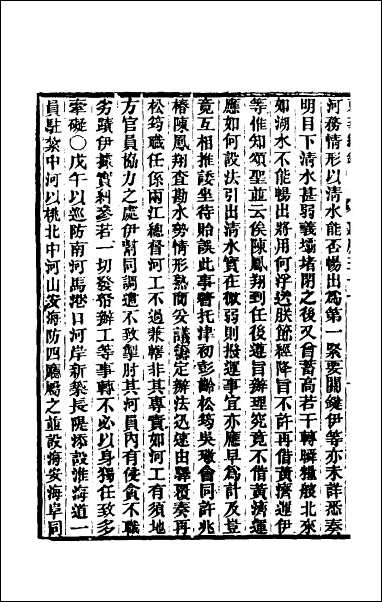 河務情形以清水能否暢出為第一緊要關鍵伊等亦未詳悉奏
明目下清水甚弱義壩堵閉之後又曾蓄高若干轉瞬糧艘北來
如湖水不能暢出將用何浮送朕飭經降旨不許再借黃濟運伊
等惟知頌聖並云俟陳鳳翔到任後遵旨辦理究竟不借黃濟運
應如何設法引出清水實在微弱則撥運事宜亦應早為計及豈
竟互相推諉坐待貽誤此事著托津初彭齡松筠吳璥會同許兆
椿陳鳳翔查勘水勢情形熟商妥議議定辦法迅速由驛覆奏再
松筠職任係兩江總督河工不過兼轄非其專責如河工有須地
方官員協力之處伊幫同調遣不致掣肘其河員內有侵貪不職
劣蹟伊據實糾參若一切發帑辦工等事轉不必以身獨任致多
牽礙〇戊午以巡防南河馬港口河岸新築長隄添設淮海道一
員駐紮中河以桃北中河山安海防四廳屬之並設海安海阜同